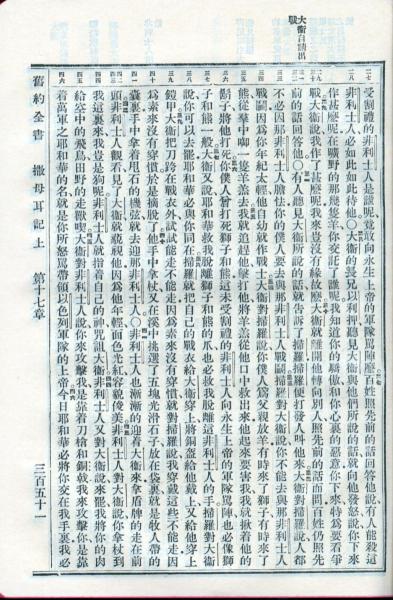 大衛自請出
戰
受割禮的非利士人是誰呢竟敢向永生上帝的軍隊罵陣麼百姓照先前的話回答他說有人能殺這
二八 非利士人必如此如此待他○大衛的長兄以利押聽見大衛與他們所說的話就向他發怒說你下來
作甚麼呢在曠野的那幾隻羊你交託了誰呢我知道你的驕傲和你心裏的惡意你下來特為要看爭
戰大衛說我作了甚麼呢我來豈沒有緣故麼大衛就離開他轉向別人照先前的話而問百姓仍照先
前的話回答他○有人聽見大衛所說的話就告訴了掃羅掃羅便打發人叫他來大衛對掃羅說人都
不必因那非利士人膽怯你的僕人要去與那非利士人戰鬬掃羅對大衛說你不能去與那非利士人
戰鬬因為你年紀太輕他自幼就作戰士大衛對掃羅說你僕人為父親放羊有時來了獅子有時來了
熊從羣中啣一隻羊羔去我就追趕他擊打他將羊羔從他口中救出來他起來要害我我就揪着他的
鬍子將他打死你僕人曾打死獅子和熊這未受割禮的非利士人向永生上帝的軍隊罵陣也必像獅
子和熊一般大衛又說耶和華救我脫離獅子和熊的爪也必救我脫離這非利士人的手掃羅對大衛
說你可以去罷耶和華必與你同在掃羅就把自己的戰衣給大衛穿上將銅盔給他戴上又給他穿上
三九 鎧甲大衛把刀跨在戰衣外試試能走不能走因為素來沒有穿慣就對掃羅說我穿戴這些不能走因
四十 為素來沒有穿慣於是摘脫了他手中拿杖又在溪中挑選了五塊光滑石子放在袋裏就是牧人帶的
囊裏手中拿着甩石的機弦就去迎那非利士人○非利士人也漸漸的迎着大衛來拿盾牌的走在前
頭非利士人觀看見了大衛就藐視他因為他年輕面色光紅容貌俊美非利士人對大衛說你拿杖到
我這裏來我豈是狗呢非利士人就指着自己的神咒詛大衛非利士人又對大衛說來罷我將你的肉
四五 給空中的飛鳥田野的走獸喫大衛對非利士人說你來攻擊我是靠着刀槍和銅戟我來攻擊你是靠
四六 着萬軍之耶和華的名就是你所怒罵帶領以色列軍隊的上帝今日耶和華必將你交在我手裏我必
舊約全書 撒母耳記上 第十七章 三百五十一